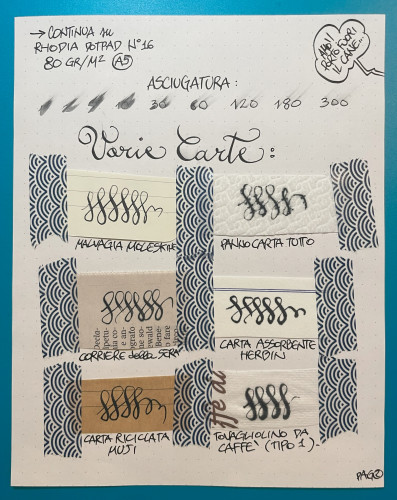 → CONTINUA su
RHODIA DOTPAD N°16
80 GR/M² (A5)
PORTO FUORI
IL CANE...
ASCIUGATURA:
30 60 120 180 300
Varie Carte:
MALVAGIA MOLESKINE
PANNO CARTA TUTTO
CORRIERE della SERA
CARTA ASSORBENTE
HERBIN
CARTA RICICLATA
MUJI
ffè al
TOVAGLIOLINO DA
CAFFE' (TIPO 1)